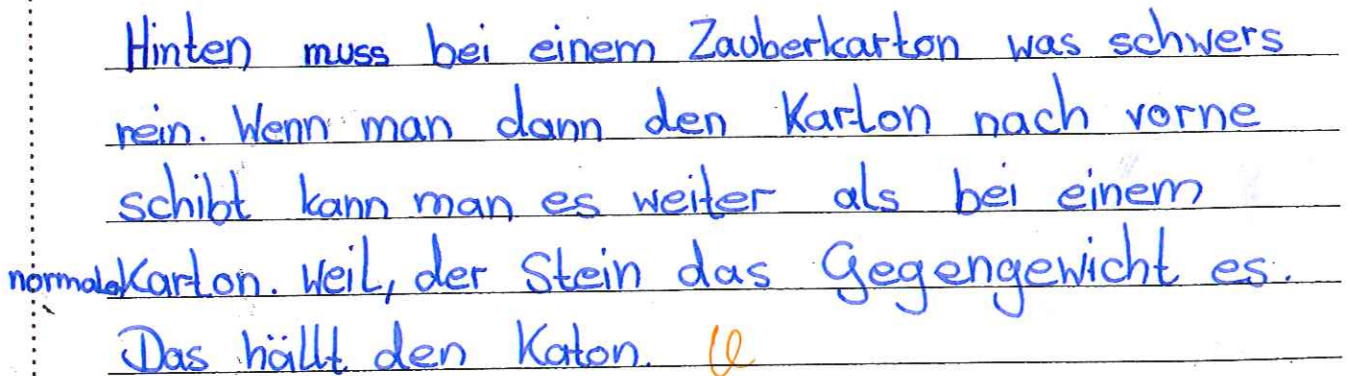 Hinten muss bei einem Zauberkarton was schwers
rein. Wenn man dann den Karton nach vorne
schibt kann man es weiter als bei einem
Karton. Weil, der Stein das Gegengewicht es.
Das hällt den Katon.